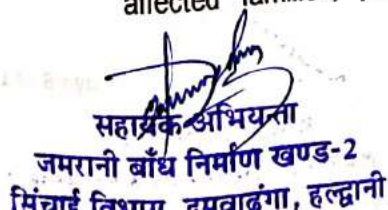 affected
सहायक अभियन्ता
जमरानी बाँध निर्माण खण्ड-2
सिंचाई विभाग, दमुवाढुंगा, हल्द्वानी